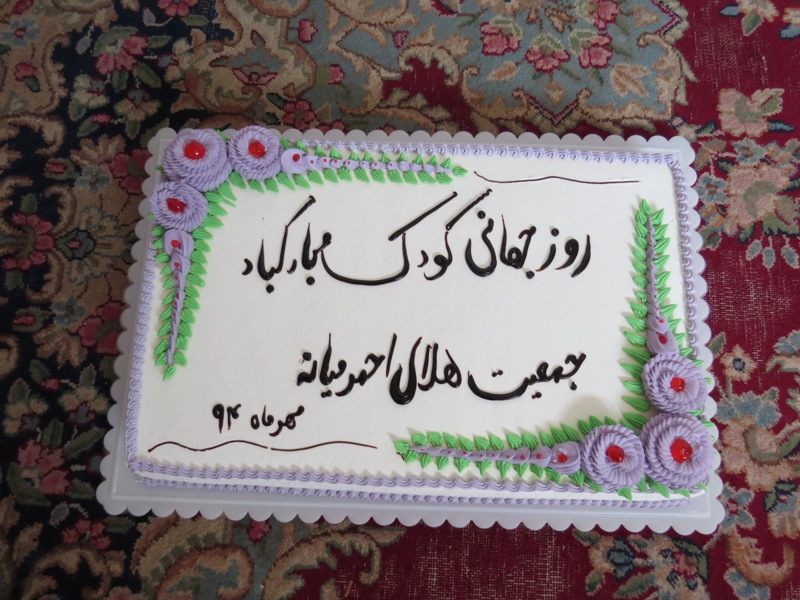 روز جهانی کودک مبارکباد
جمعیت هلال احمر میانه
مهرماه ۹۴